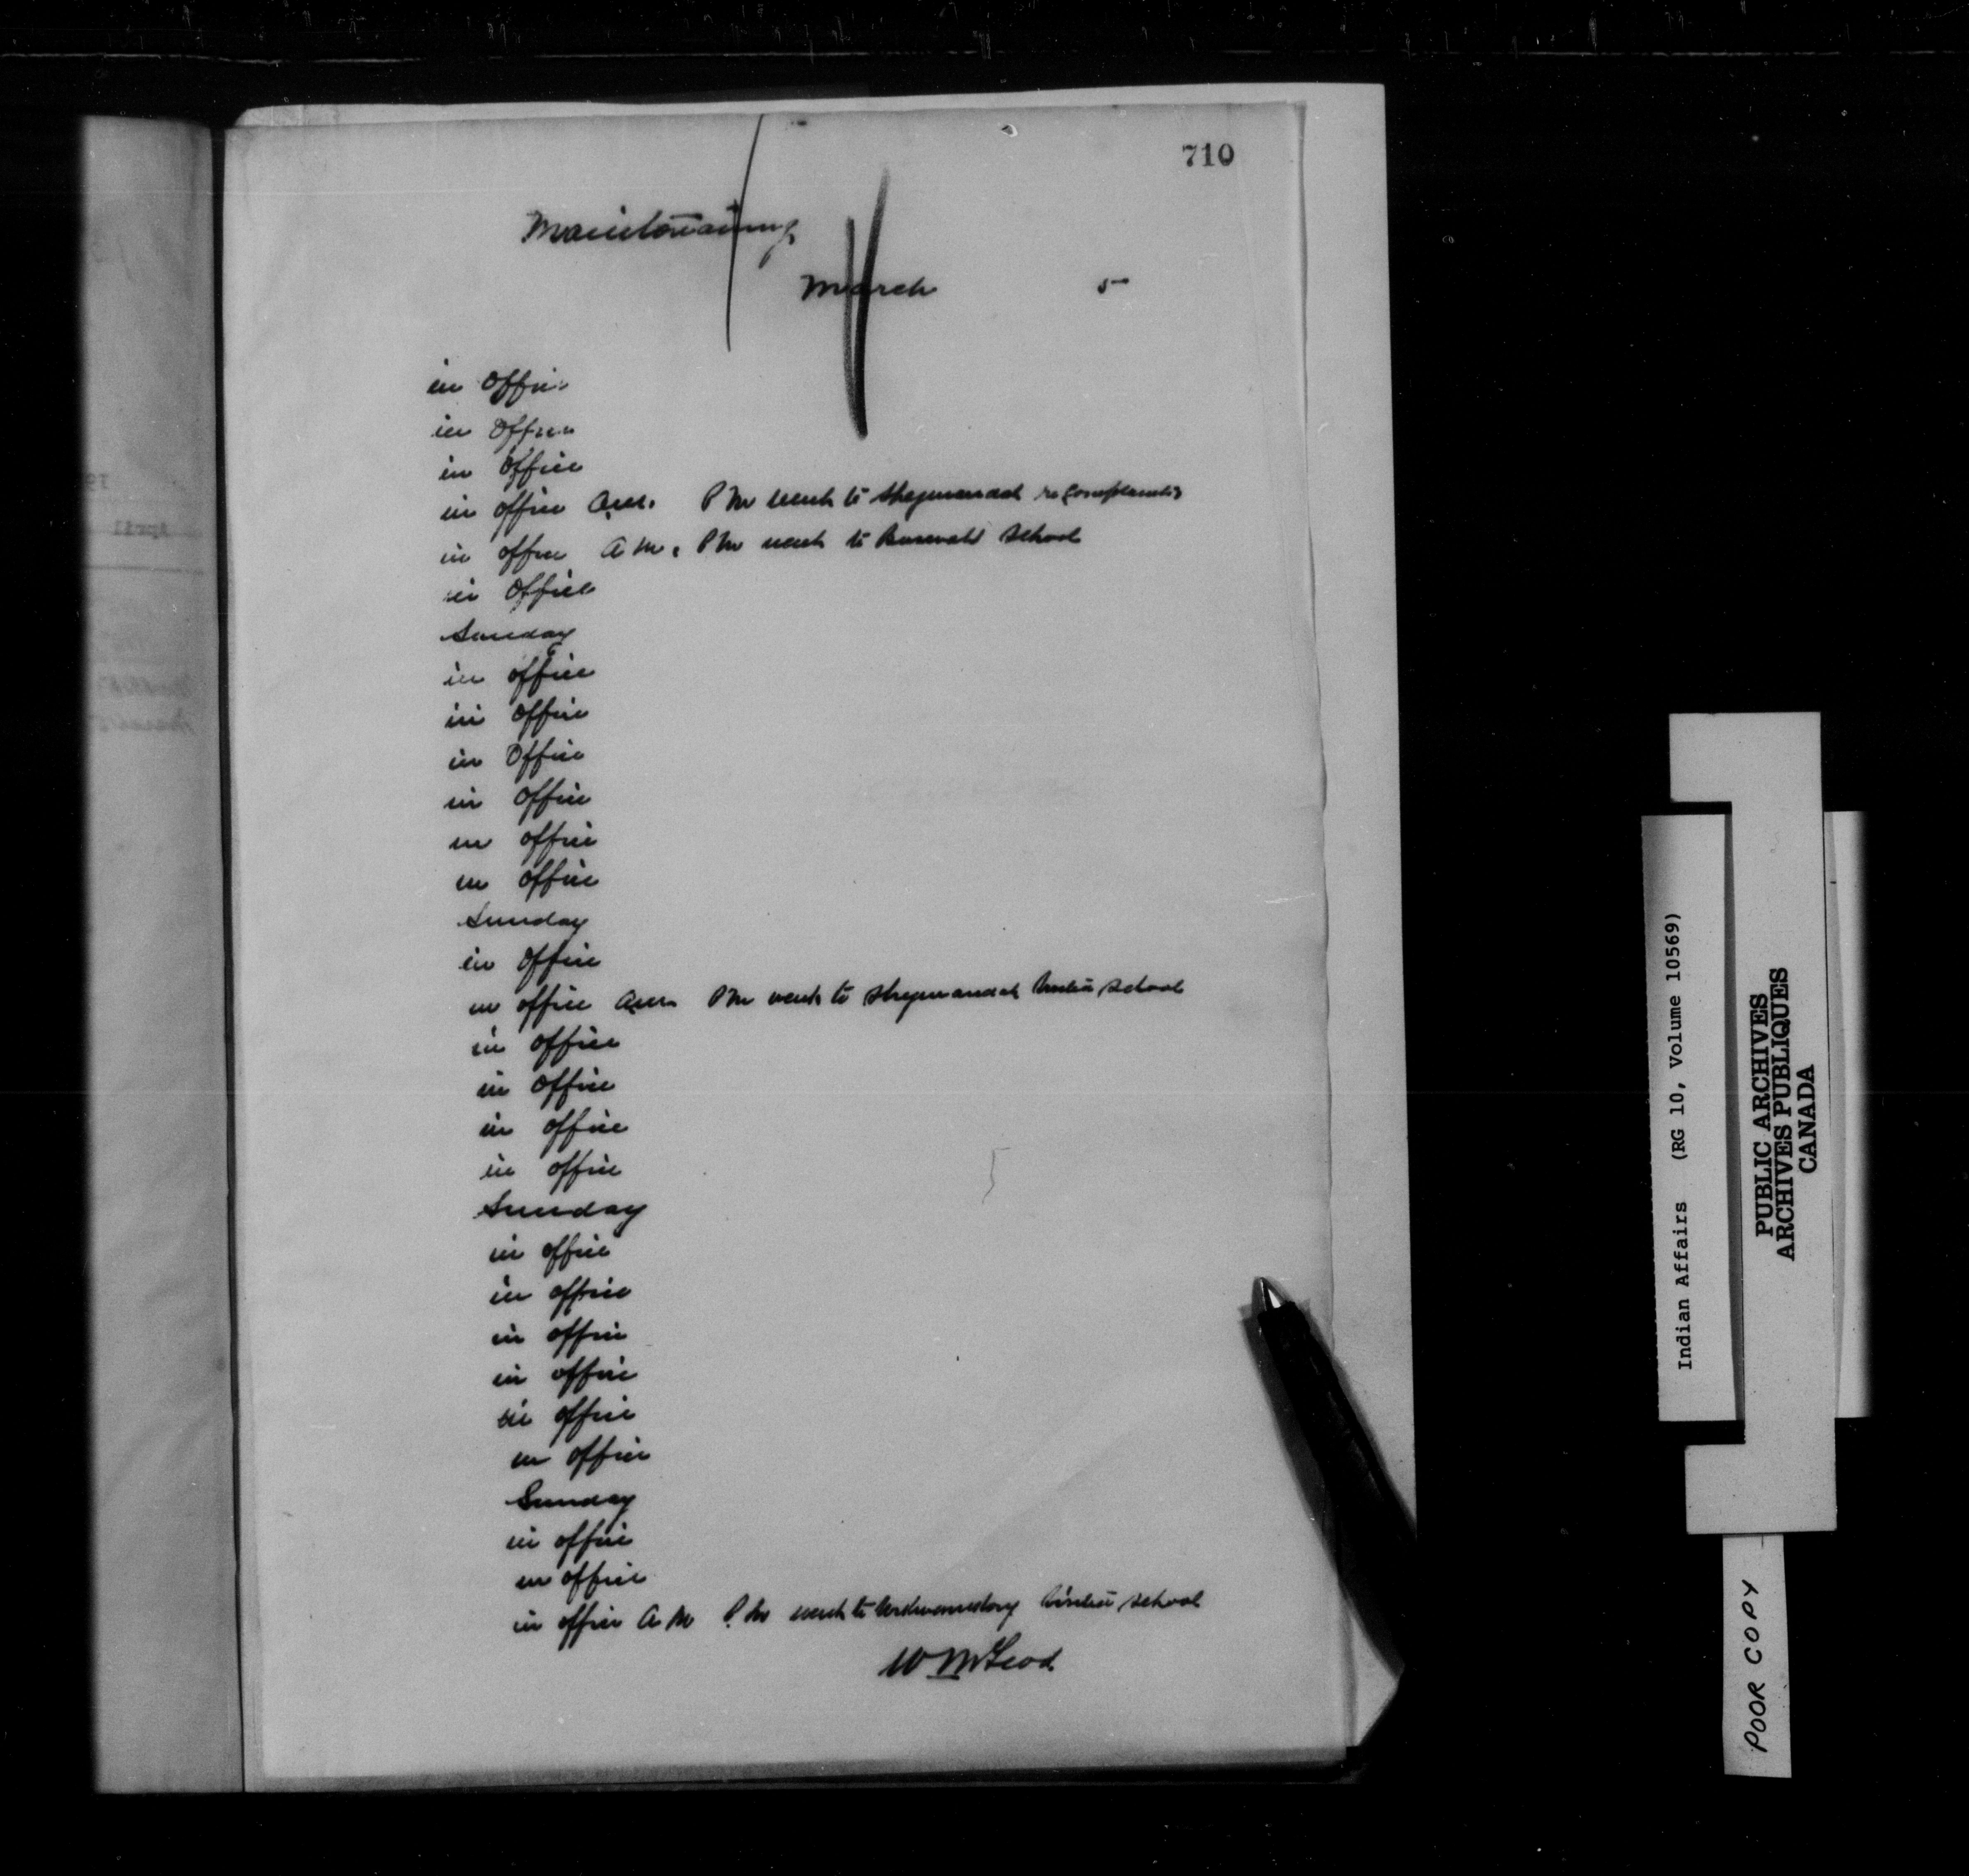 710
Manitowaning
March 5
in office
in office
in office
in office A.M. P M went to Shegwandah re complaints
in office A M. P M went to school
in office
Sunday
in office
in office
in office
in office
in office
in office
Sunday
in office
in office A.M. P M went to Shegwandah school
in office
in office
in office
in office
Sunday
in office
in office
in office
in office
in office
in office
Sunday
in office
in office
in office A M P. M went to school
W McLeod
April
Indian Affairs (RG 10, Volume 10569)
PUBLIC ARCHIVES
ARCHIVES PUBLIQUES
CANADA
POOR COPY